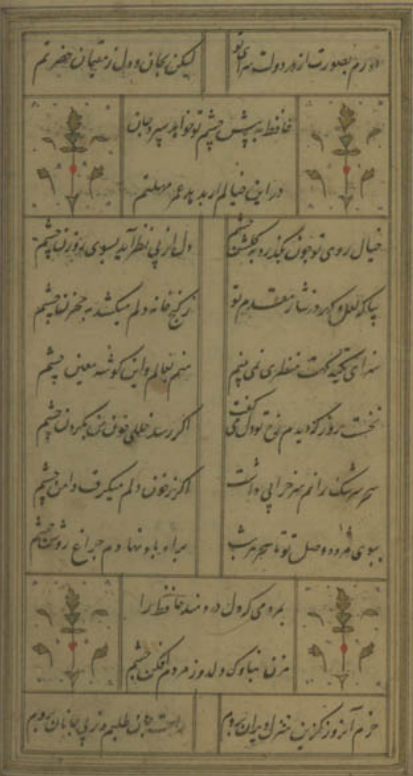 دورم بصورت از در دولت سرای تو
لیکن بجان و دل ز مقیمان حضرتم
حافظ به پیش چشم تو خواهد سپرد جان
در این خیالم ار بدهد عمر مهلتم
خیال روی تو چون بگذرد به گلشن چشم
دل از پی نظر آید بسوی روزن چشم
بیا که لعل و گهر در نثار مقدم تو
ز گنج خانه دل میکشد به چشم
سزای تکیه گهت منظری نمی بینم
منم ز عالم و این گوشه معین چشم
نخست روز که دیدم رخ تو دل می گفت
اگر رسد خللی خون من بگردن چشم
سحر سرشک روانم سر خرابی داشت
اگر نه خون دلم میگرفت دامن چشم
ببوی مژده وصل تو تا سحر شب
براه باد نهادم چراغ روشن چشم
بمردمی که دل دردمند حافظ را
مزن بناوک دلدوز مردم افکن چشم
خرم آن روز کزین منزل ویران بروم
راحت جان طلبم وز پی جانان بروم